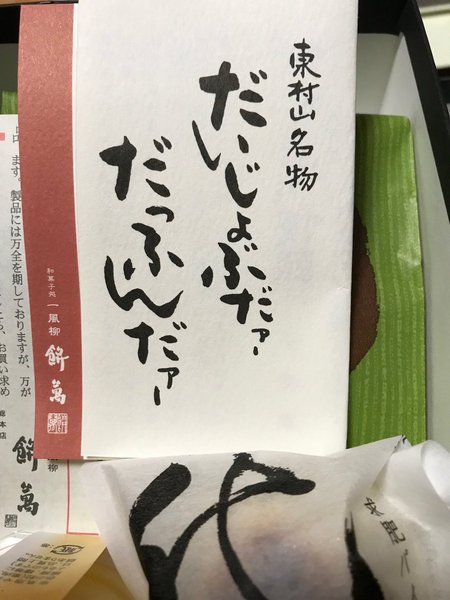 東村山名物
だいじょぶだァー
だっふんだァー
和菓子処 一風柳 餅萬
ます。製品には万全を期しておりますが、万が
お買い求め
総本店
餅萬